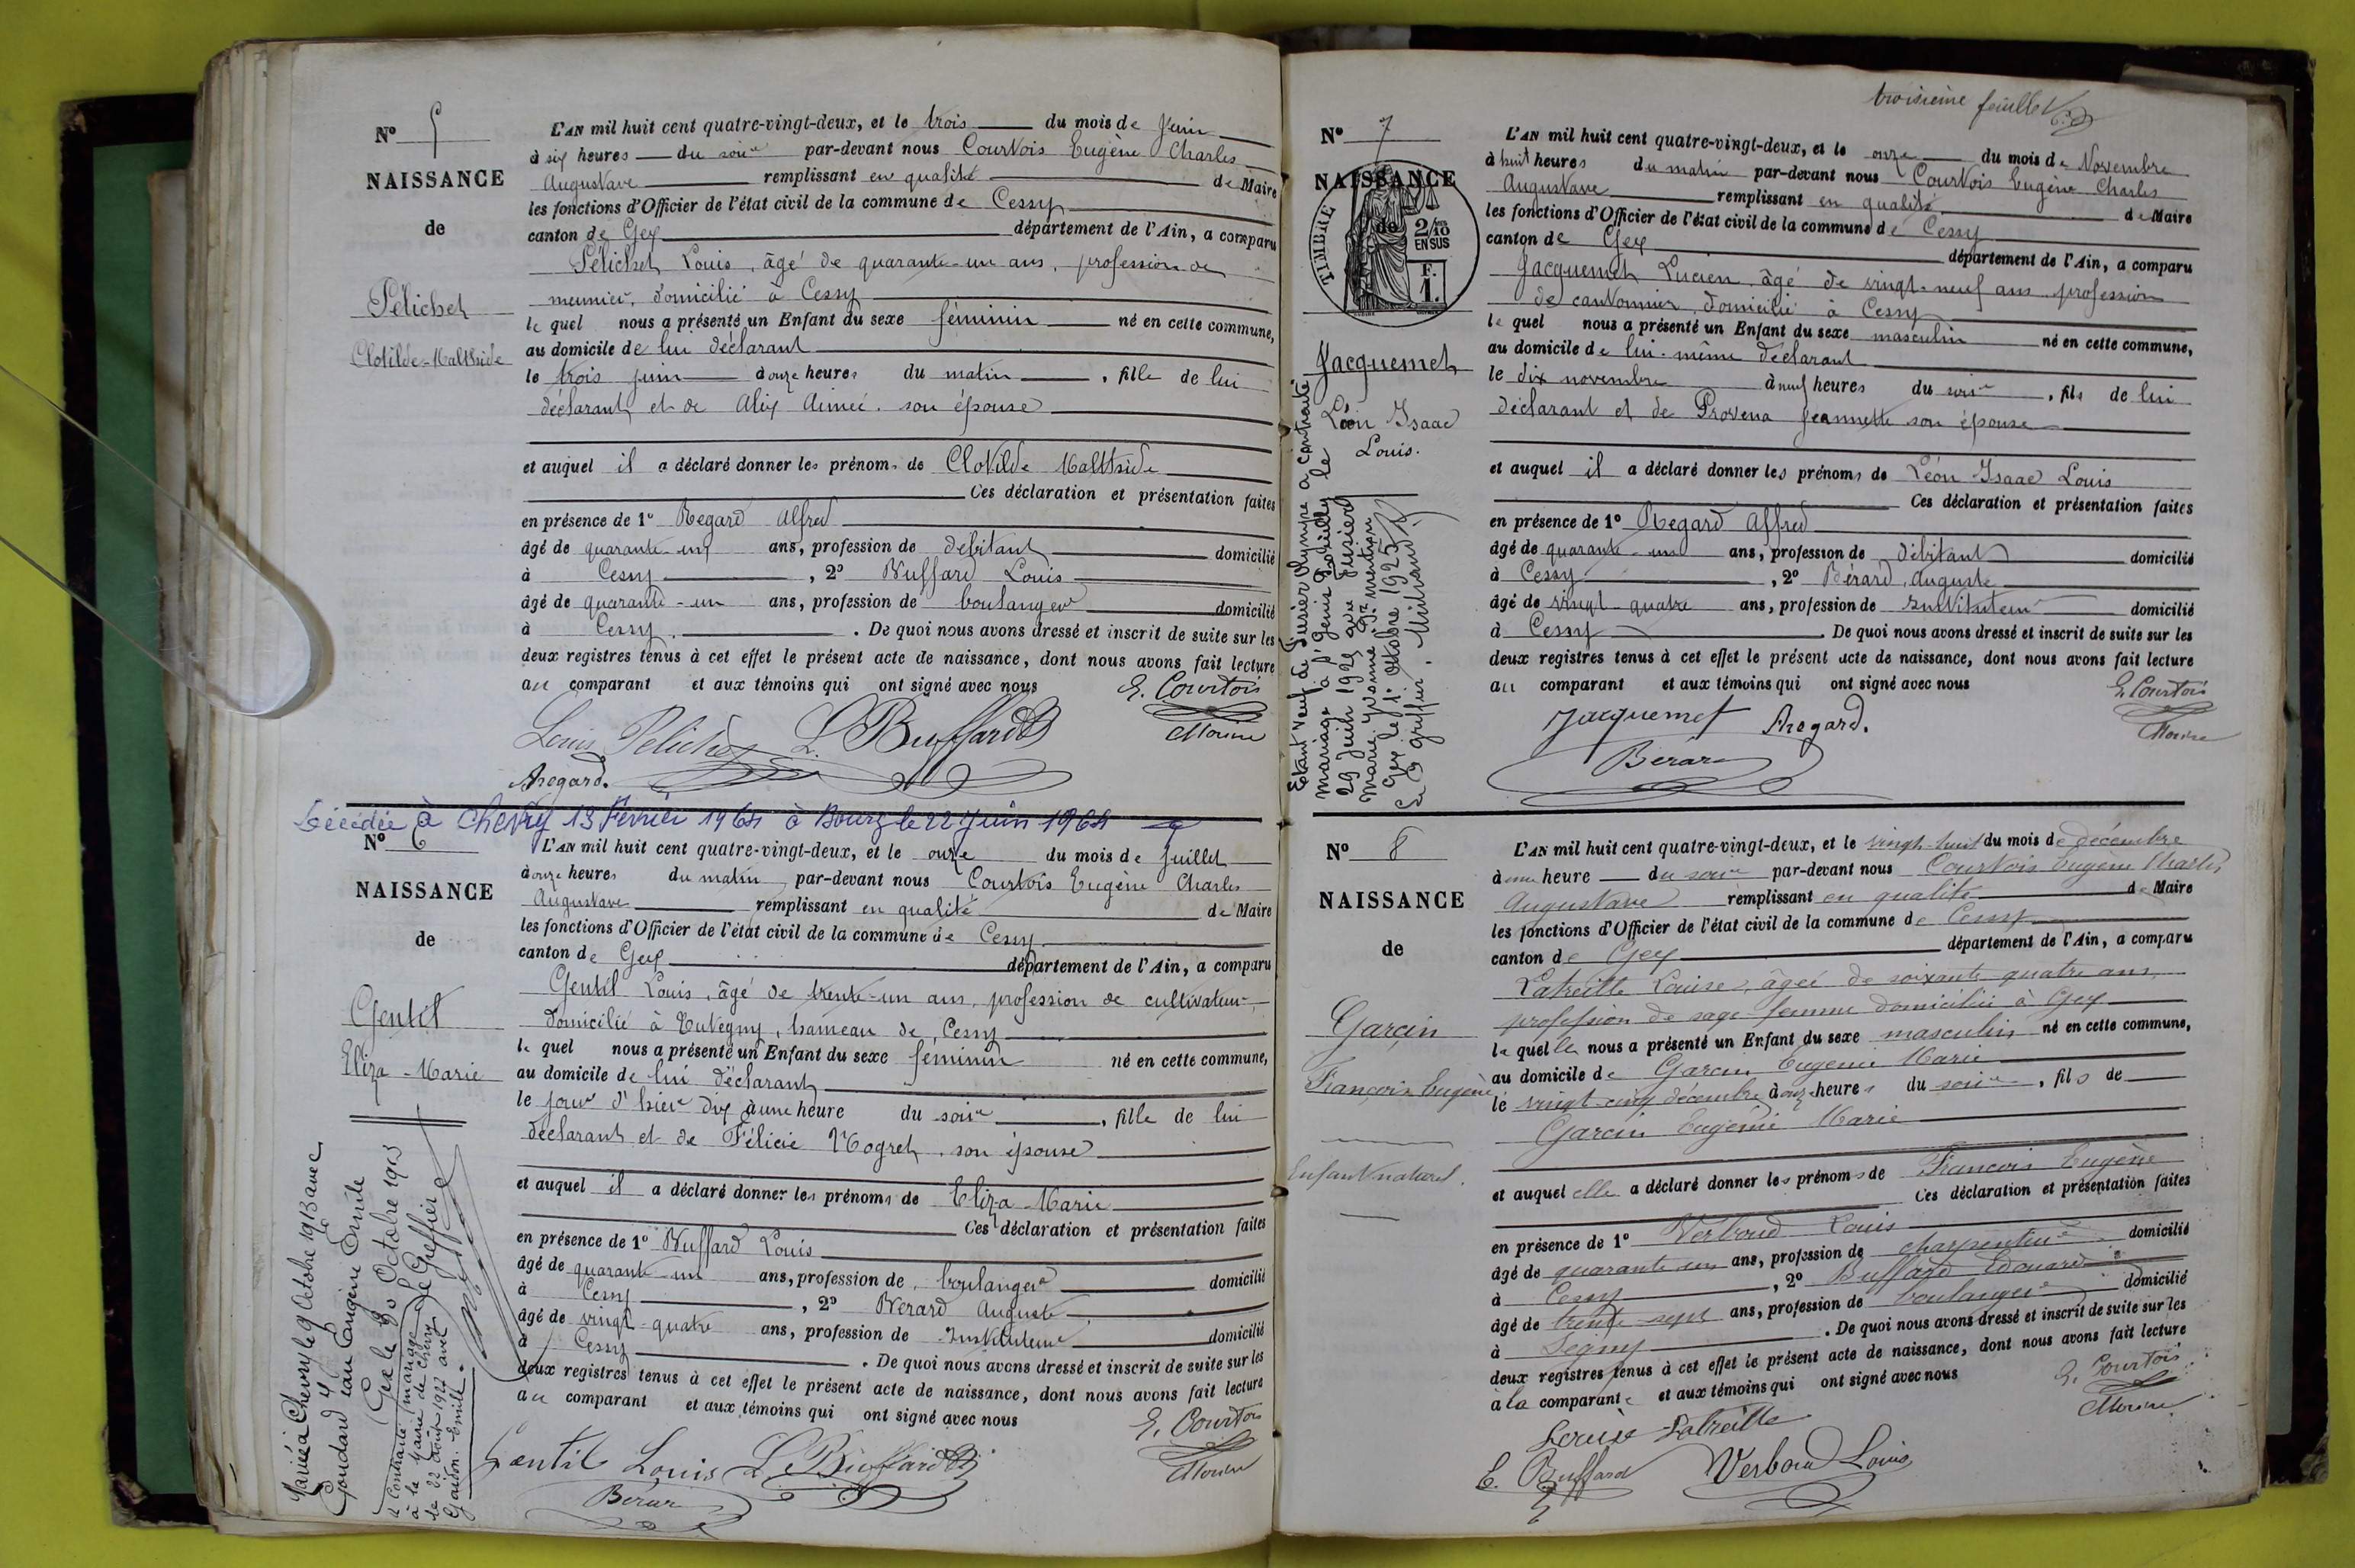 N° 5
NAISSANCE
de
Pélichet
Clotilde-Malthide
L'AN mil huit cent quatre-vingt-deux, et le trois du mois de Juin
à six heures du soir par-devant nous Courtois Eugène Charles
Augustave remplissant en qualité de Maire
les fonctions d'Officier de l'état civil de la commune de Cessy
canton de Gex département de l'Ain, a comparu
Pélichet Louis, âgé de quarante-un ans, profession de
meunier, domicilié à Cessy
le quel nous a présenté un Enfant du sexe féminin né en cette commune,
au domicile de lui déclarant
le trois juin à onze heures du matin, fille de lui
déclarant et de Alix Aimée, son épouse
et auquel il a déclaré donner les prénoms de Clotilde Malthide
Ces déclaration et présentation faites
en présence de 1° Regard Alfred
âgé de quarante-un ans, profession de débitant domicilié
à Cessy, 2° Buffard Louis
âgé de quarante-un ans, profession de boulanger domicilié
à Cessy. De quoi nous avons dressé et inscrit de suite sur les
deux registres tenus à cet effet le présent acte de naissance, dont nous avons fait lecture
au comparant et aux témoins qui ont signé avec nous
E. Courtois
Maire
Louis Pelichet L. Buffard
Aregard.
Décédée à Chevry 13 Février 1964 à Bourg le 22 Juin 1964
N° 6
NAISSANCE
de
Gentil
Eliza-Marie
Mariée à Chevry le 9 Octobre 1913 avec
Goudard Jean Eugène Emile
Gex le 30 Octobre 1913
Le Greffier
à Contracté mariage
à la Mairie de Chevry
le 22 août 1927 avec
Gaidon Emile.
L'AN mil huit cent quatre-vingt-deux, et le onze du mois de Juillet
à onze heures du matin par-devant nous Courtois Eugène Charles
Augustave remplissant en qualité de Maire
les fonctions d'Officier de l'état civil de la commune de Cessy
canton de Gex département de l'Ain, a comparu
Gentil Louis, âgé de trente-un ans, profession de cultivateur,
domicilié à Tutegny, hameau de Cessy
le quel nous a présenté un Enfant du sexe féminin né en cette commune,
au domicile de lui déclarant
le jour d'hier dix à une heure du soir, fille de lui
déclarant et de Félicie Mogret, son épouse
et auquel il a déclaré donner les prénoms de Eliza-Marie
Ces déclaration et présentation faites
en présence de 1° Buffard Louis
âgé de quarante-un ans, profession de boulanger domicilié
à Cessy, 2° Bérard Auguste
âgé de vingt-quatre ans, profession de Instituteur domicilié
à Cessy. De quoi nous avons dressé et inscrit de suite sur les
deux registres tenus à cet effet le présent acte de naissance, dont nous avons fait lecture
au comparant et aux témoins qui ont signé avec nous
E. Courtois
Maire
Gentil Louis L. Buffard
Bérard
troisième feuillet
N° 7
NAISSANCE
de
TIMBRE
2/10
EN SUS
F.
1.
Jacquemet
Léon Isaac
Louis.
Etant veuf de Susier Olympe a contracté
mariage à St Genis Pouilly le
29 Juin 1925 avec Susier
Marie Yvonne Pr mention
Gex le 1r Octobre 1925
Le greffier
L'AN mil huit cent quatre-vingt-deux, et le onze du mois de Novembre
à huit heures du matin par-devant nous Courtois Eugène Charles
Augustave remplissant en qualité de Maire
les fonctions d'Officier de l'état civil de la commune de Cessy
canton de Gex département de l'Ain, a comparu
Jacquemet Lucien, âgé de vingt-neuf ans profession
de cantonnier, domicilié à Cessy
le quel nous a présenté un Enfant du sexe masculin né en cette commune,
au domicile de lui-même déclarant
le dix novembre à neuf heures du soir, fils de lui
déclarant et de Provena Jeannette son épouse
et auquel il a déclaré donner les prénoms de Léon Isaac Louis
Ces déclaration et présentation faites
en présence de 1° Regard Alfred
âgé de quarante-un ans, profession de débitant domicilié
à Cessy, 2° Bérard, Auguste
âgé de vingt-quatre ans, profession de Instituteur domicilié
à Cessy. De quoi nous avons dressé et inscrit de suite sur les
deux registres tenus à cet effet le présent acte de naissance, dont nous avons fait lecture
au comparant et aux témoins qui ont signé avec nous
E. Courtois
Maire
Jacquemet Aregard.
Bérard
N° 8
NAISSANCE
de
Garcin
François Eugène
Enfant naturel.
L'AN mil huit cent quatre-vingt-deux, et le vingt-huit du mois de décembre
à une heure du soir par-devant nous Courtois Eugène Charles
Augustave remplissant en qualité de Maire
les fonctions d'Officier de l'état civil de la commune de Cessy
canton de Gex département de l'Ain, a comparu
Latreille Louise, âgée de soixante quatre ans,
profession de sage-femme domiciliée à Gex
la quelle nous a présenté un Enfant du sexe masculin né en cette commune,
au domicile de Garcin Eugénie Marie
le vingt-cinq décembre à onze heures du soir, fils de
Garcin Eugénie Marie
et auquel elle a déclaré donner les prénoms de François Eugène
Ces déclaration et présentation faites
en présence de 1° Verboud Louis
âgé de quarante un ans, profession de charpentier domicilié
à Cessy, 2° Buffard Edouard
âgé de trente sept ans, profession de boulanger domicilié
à Segny. De quoi nous avons dressé et inscrit de suite sur les
deux registres tenus à cet effet le présent acte de naissance, dont nous avons fait lecture
à la comparante et aux témoins qui ont signé avec nous
E. Courtois
Maire
Louise Latreille
E. Buffard Verboud Louis